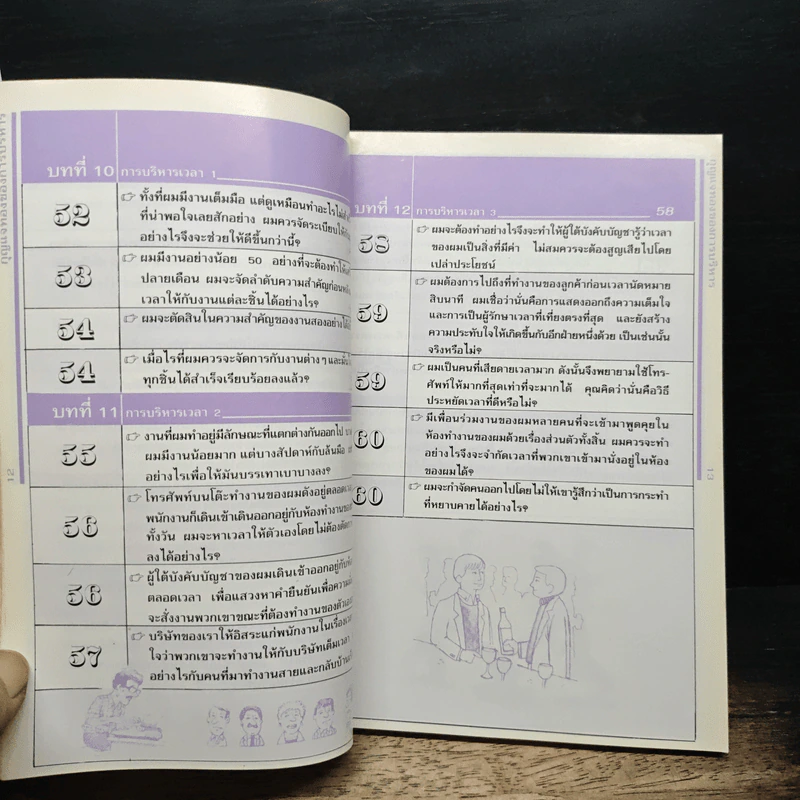 กุญแจทองของการบริหาร
บทที่ 10 การบริหารเวลา 1
52
☞ ทั้งที่ผมมีงานเต็มมือ แต่ดูเหมือนทำอะไร
ที่น่าพอใจเลยสักอย่าง ผมควรจัดระเบียบ
อย่างไรจึงจะช่วยให้ดีขึ้นกว่านี้?
53
☞ ผมมีงานอย่างน้อย 50 อย่างที่จะต้องทำ
ปลายเดือน ผมจะจัดลำดับความสำคัญก่อน
เวลาให้กับงานแต่ละชิ้นได้อย่างไร?
54
☞ ผมจะตัดสินในความสำคัญของงานสองอย่าง
54
☞ เมื่อไรที่ผมควรจะจัดการกับงานต่างๆ
ทุกชิ้นได้สำเร็จเรียบร้อยลงแล้ว?
บทที่ 11 การบริหารเวลา 2
55
☞ งานที่ผมทำอยู่มีลักษณะที่แตกต่างกันออกไป
ผมมีงานน้อยมาก แต่บางสัปดาห์กับล้นมือ
อย่างไรเพื่อให้มันบรรเทาเบาบางลง?
56
☞ โทรศัพท์บนโต๊ะทำงานของผมดังอยู่ตลอด
พนักงานก็เดินเข้าเดินออกอยู่กับห้องทำงาน
ทั้งวัน ผมจะหาเวลาให้ตัวเองโดยไม่ต้อง
ลงได้อย่างไร?
56
☞ ผู้ใต้บังคับบัญชาของผมเดินเข้าออกอยู่
ตลอดเวลา เพื่อแสวงหาคำยืนยันเพื่อความ
จะสั่งงานพวกเขาขณะที่ต้องทำงานของ
57
☞ บริษัทของเราให้อิสระแก่พนักงานในเรื่อง
ใจว่าพวกเขาจะทำงานให้กับบริษัทเต็มเวลา
อย่างไรกับคนที่มาทำงานสายและกลับบ้าน
12
บทที่ 12 การบริหารเวลา 3 58
58
☞ ผมจะต้องทำอย่างไรจึงจะทำให้ผู้ใต้บังคับบัญชารู้ว่าเวลา
ของผมเป็นสิ่งที่มีค่า ไม่สมควรจะต้องสูญเสียไปโดย
เปล่าประโยชน์
59
☞ ผมต้องการไปถึงที่ทำงานของลูกค้าก่อนเวลานัดหมาย
สิบนาที ผมเชื่อว่านั่นคือการแสดงออกถึงความเต็มใจ
และการเป็นผู้รักษาเวลาที่เที่ยงตรงที่สุด และยังสร้าง
ความประทับใจให้เกิดขึ้นกับอีกฝ่ายหนึ่งด้วย เป็นเช่นนั้น
จริงหรือไม่?
59
☞ ผมเป็นคนที่เสียดายเวลามาก ดังนั้นจึงพยายามใช้โทร-
ศัพท์ให้มากที่สุดเท่าที่จะมากได้ คุณคิดว่านั่นคือวิธี
ประหยัดเวลาที่ดีหรือไม่?
60
☞ มีเพื่อนร่วมงานของผมหลายคนที่จะเข้ามาพูดคุยใน
ห้องทำงานของผมด้วยเรื่องส่วนตัวทั้งสิ้น ผมควรจะทำ
อย่างไรจึงจะจำกัดเวลาที่พวกเขาเข้ามานั่งอยู่ในห้อง
ของผมได้?
60
☞ ผมจะกำจัดคนออกไปโดยไม่ให้เขารู้สึกว่าเป็นการกระทำ
ที่หยาบคายได้อย่างไร?
กุญแจทองของการบริหาร
13